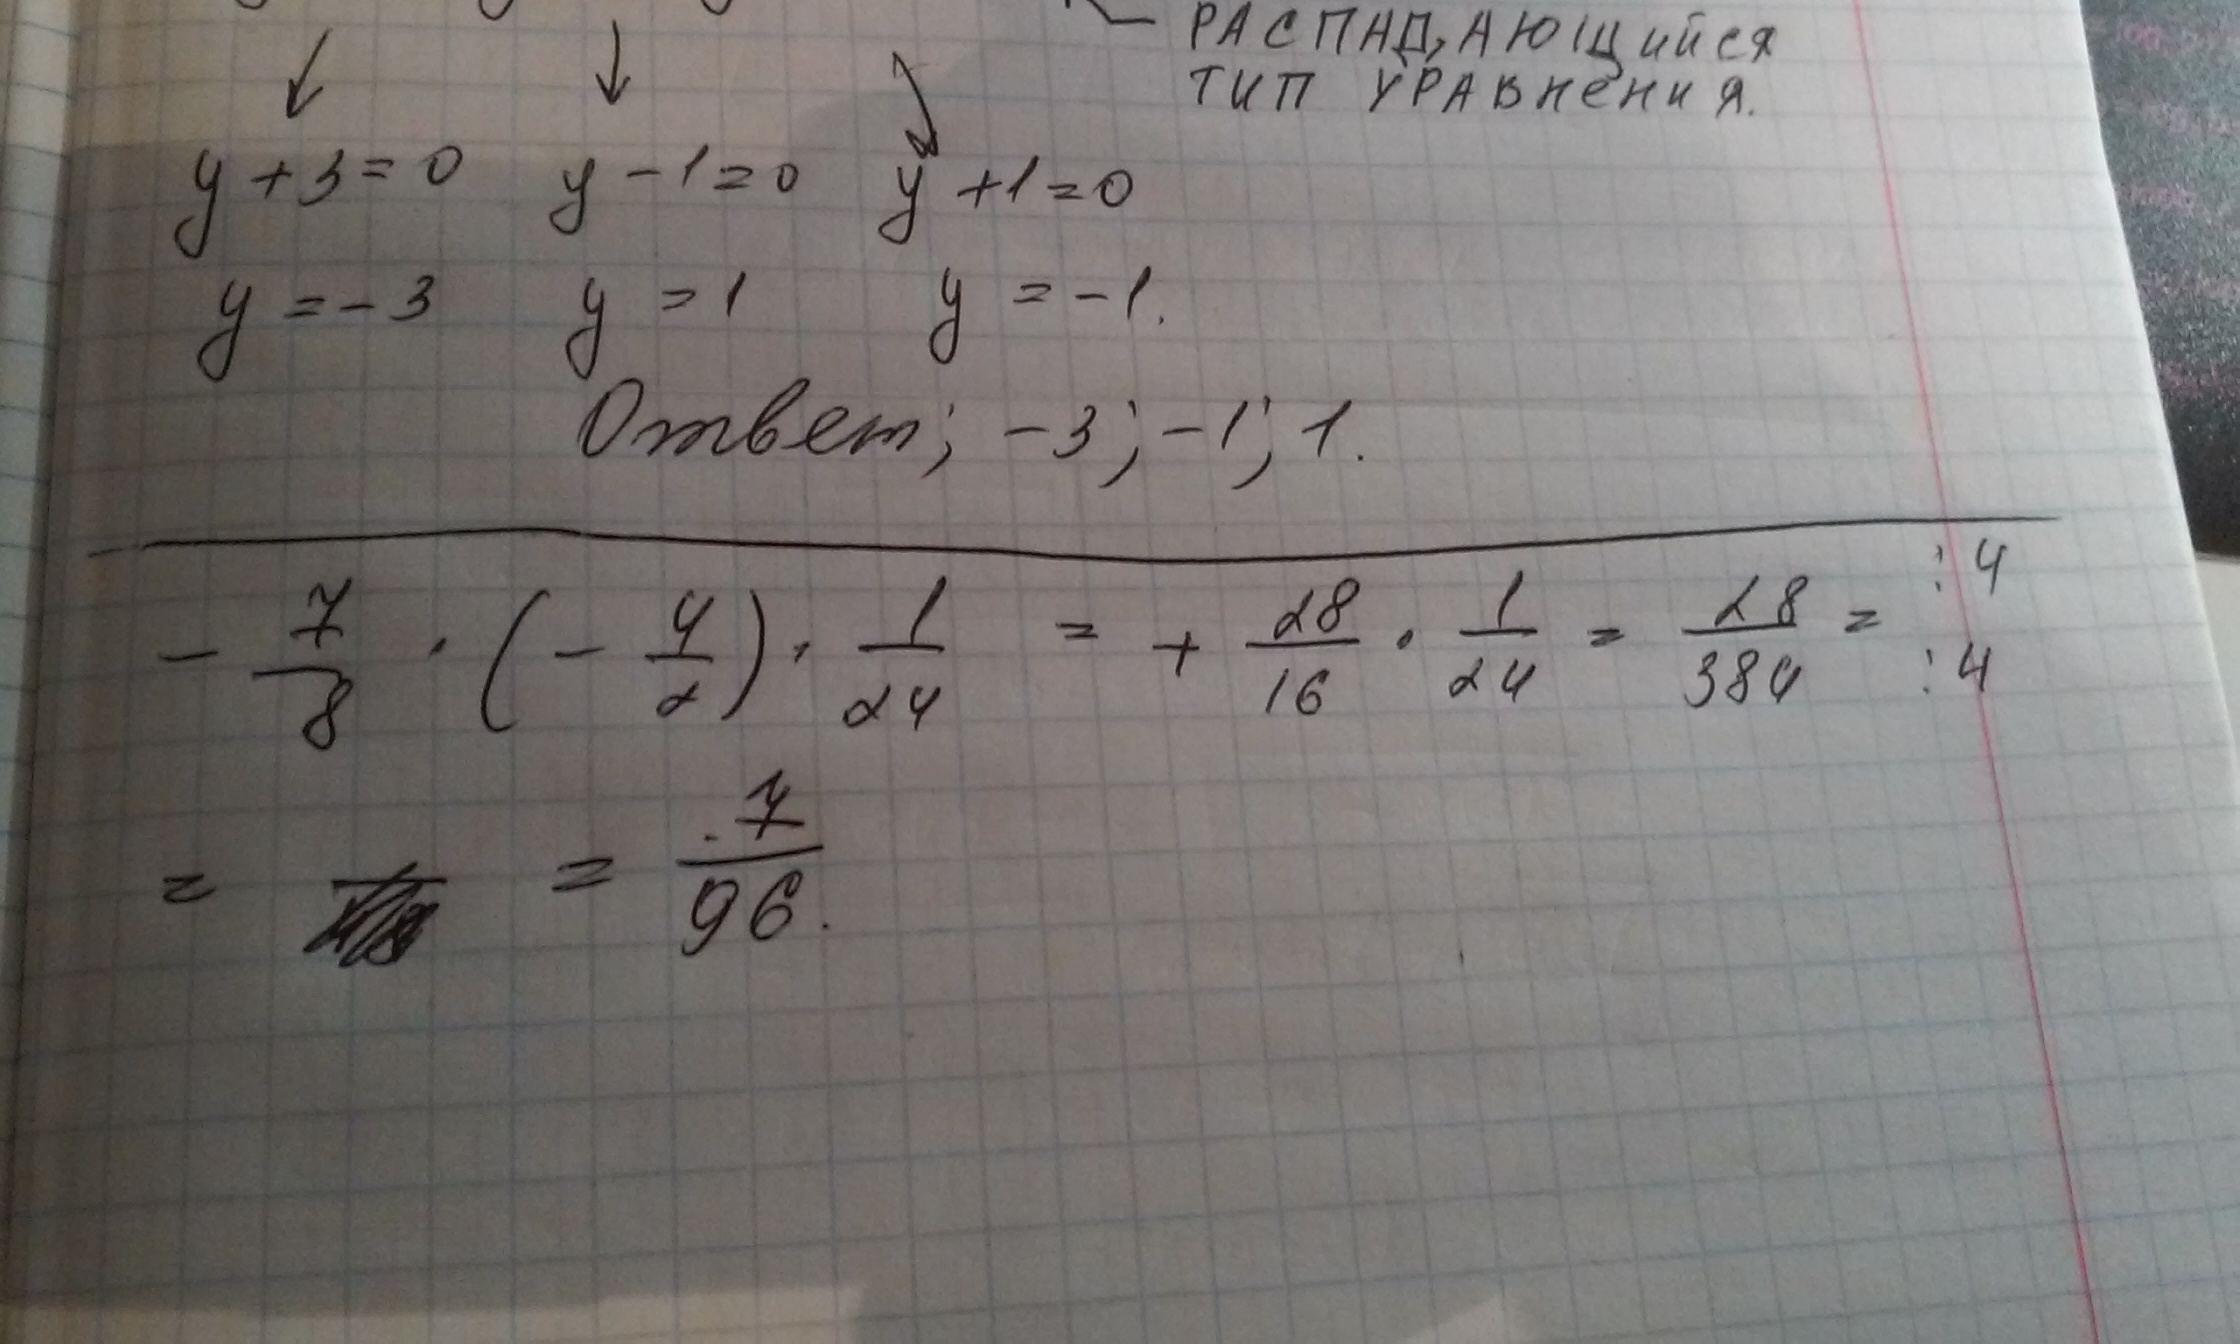 РАСПАДАЮЩИЙСЯ
ТИП УРАВНЕНИЯ.
y + 3 = 0 y - 1 = 0 y + 1 = 0
y = - 3 y = 1 y = - 1.
Ответ; -3; -1; 1.
- 7/8 · (- 4/2) · 1/24 = + 28/16 · 1/24 = 28/384 = :4 :4
= = 7/96.